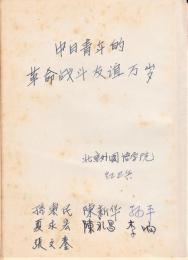 中日青年的
革命战斗友谊万岁
北京外国语学院
红卫兵
陳新华 孙平
夏永宏 陳礼昌 李
张文奎